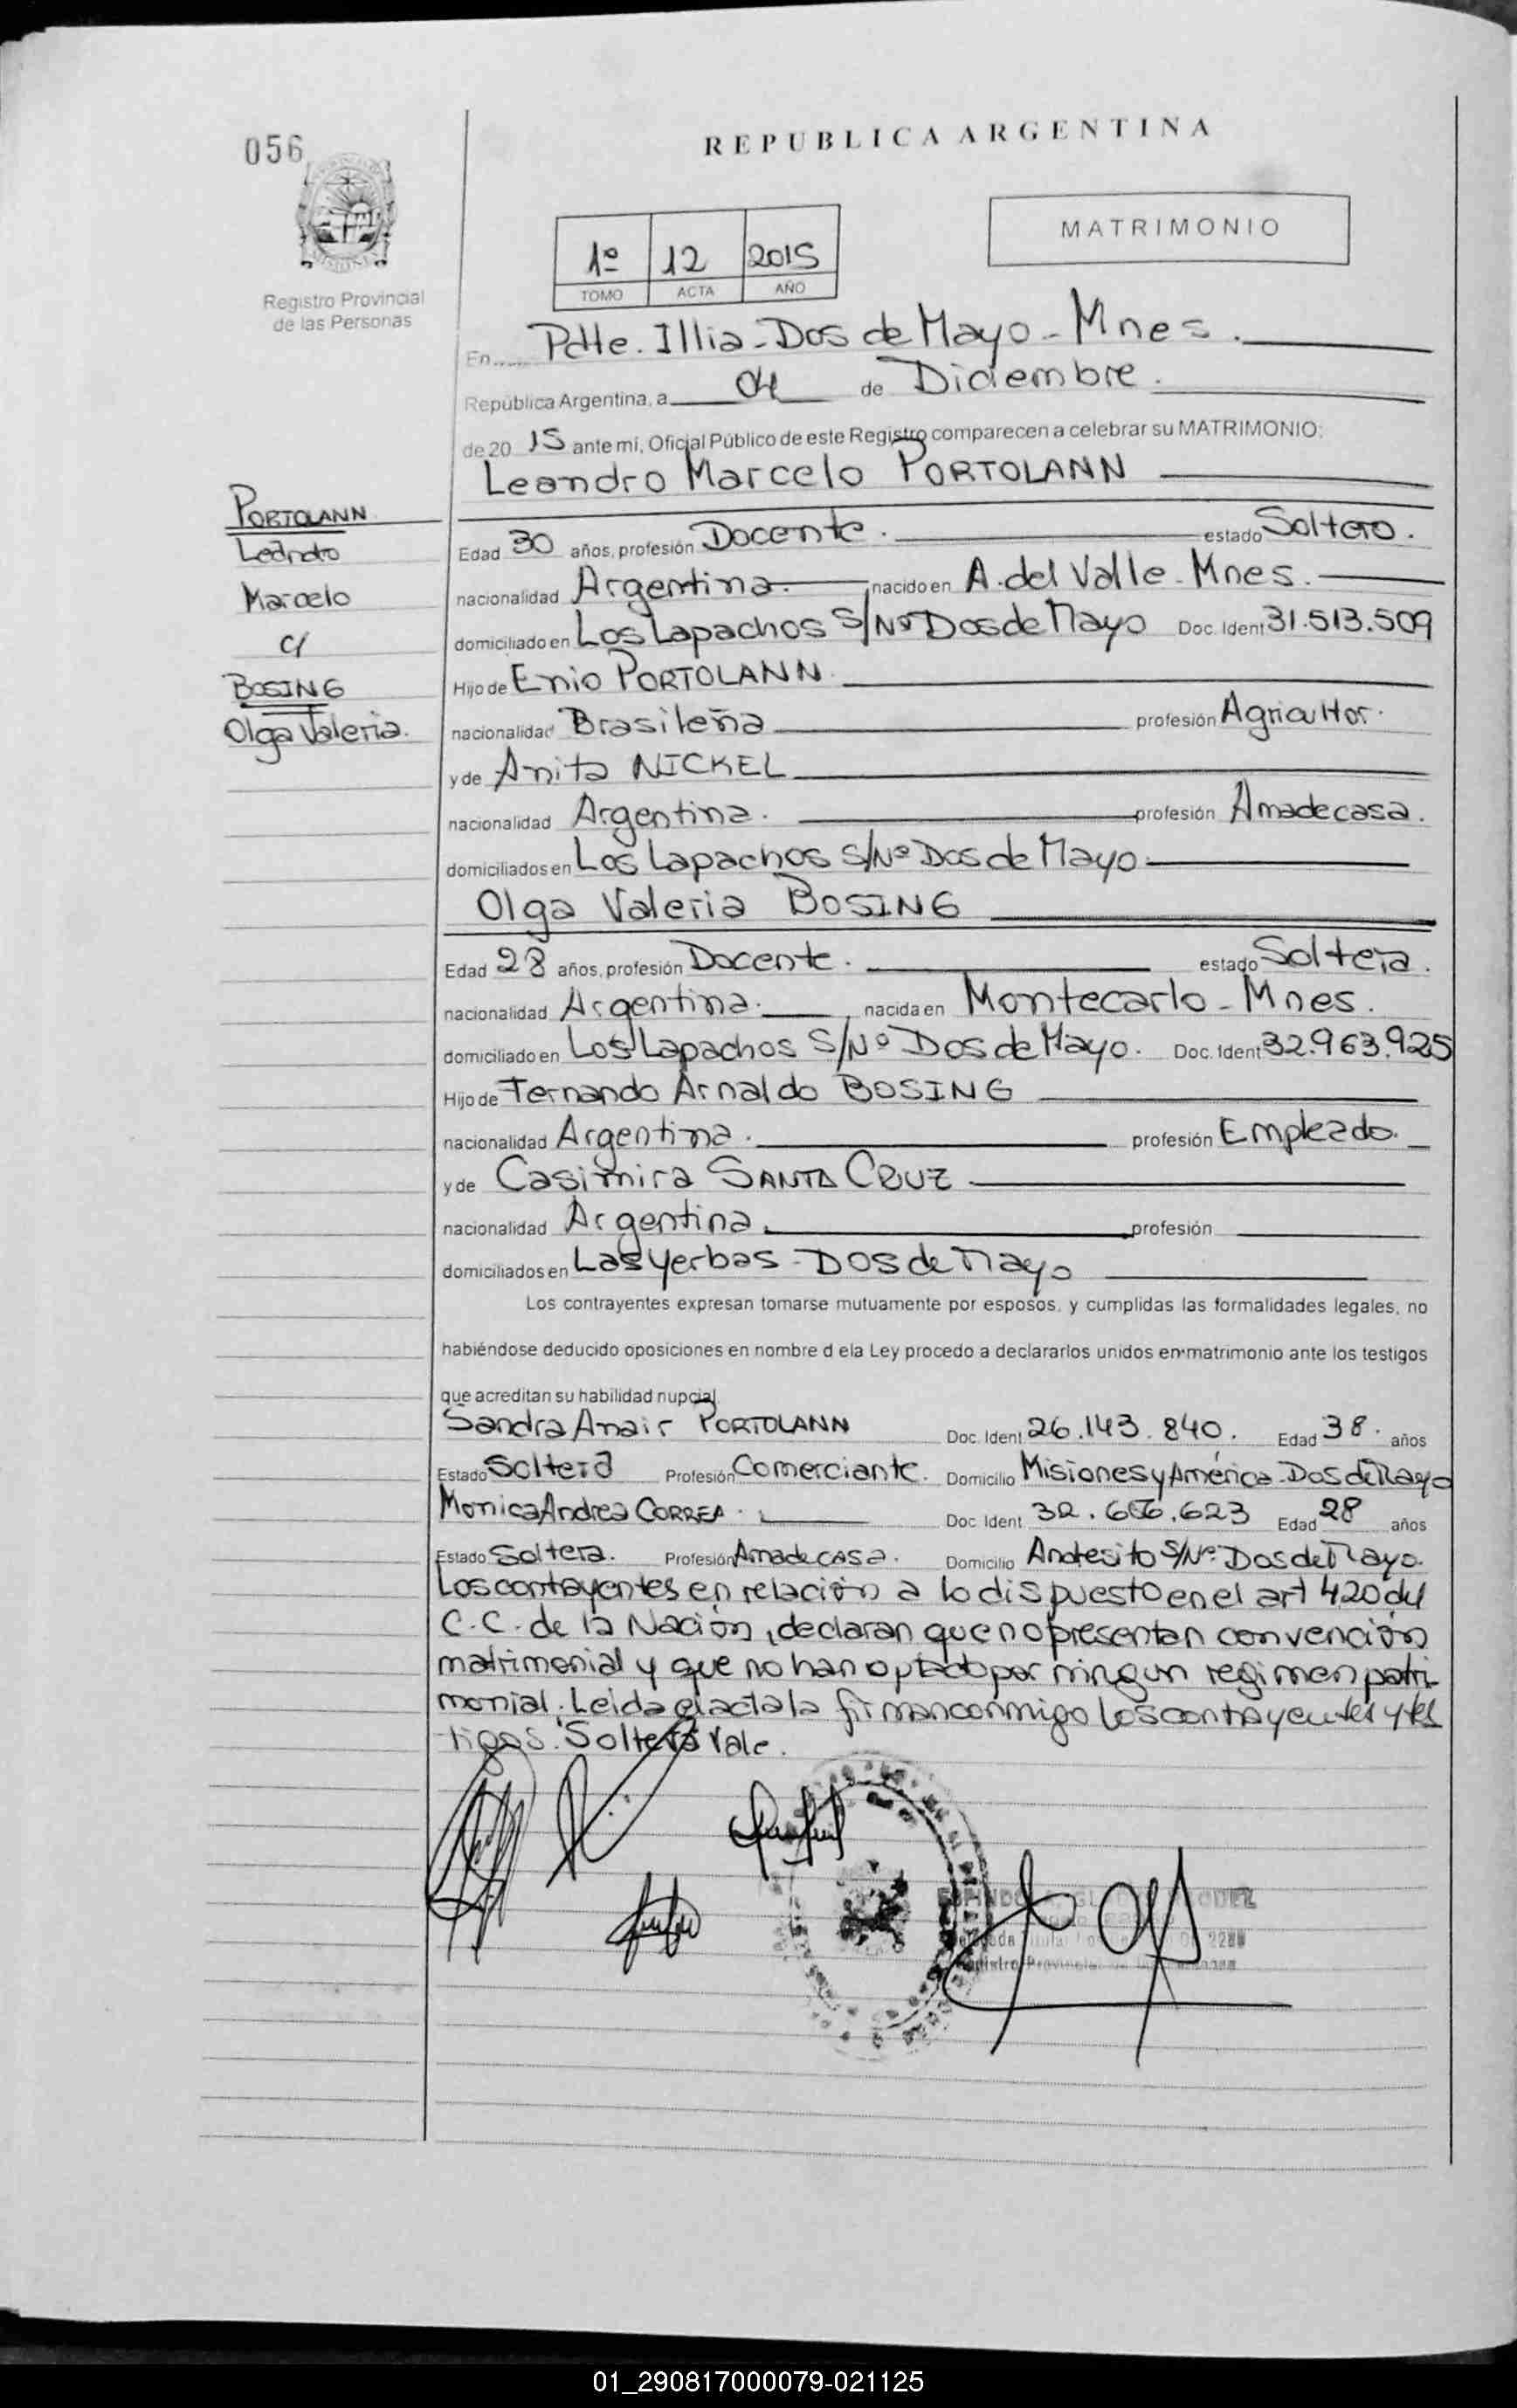 056
REPUBLICA ARGENTINA
MATRIMONIO
1º 12 2015
TOMO ACTA AÑO
Registro Provincial
de las Personas
En Pdte. Illia - Dos de Mayo - Mnes.
República Argentina, a 04 de Diciembre.
de 20 15 ante mí, Oficial Público de este Registro comparecen a celebrar su MATRIMONIO:
Leandro Marcelo PORTOLANN
PORTOLANN
Leandro
Marcelo
c/
BOSING
Olga Valeria.
Edad 30 años, profesión Docente. estado Soltero.
nacionalidad Argentina. nacido en A. del Valle - Mnes.
domiciliado en Los Lapachos S/Nº Dos de Mayo Doc. Ident 31.513.509
Hijo de Enio PORTOLANN
nacionalidad Brasileña profesión Agricultor.
y de Anita NICKEL
nacionalidad Argentina. profesión Ama de casa.
domiciliados en Los Lapachos S/Nº Dos de Mayo
Olga Valeria BOSING
Edad 28 años, profesión Docente. estado Soltera.
nacionalidad Argentina. nacida en Montecarlo - Mnes.
domiciliado en Los Lapachos S/Nº Dos de Mayo. Doc. Ident 32.963.925
Hijo de Fernando Arnaldo BOSING
nacionalidad Argentina. profesión Empleado.
y de Casimira SANTA CRUZ
nacionalidad Argentina. profesión
domiciliados en Las Yerbas - Dos de Mayo
Los contrayentes expresan tomarse mutuamente por esposos, y cumplidas las formalidades legales, no
habiéndose deducido oposiciones en nombre d ela Ley procedo a declararlos unidos en matrimonio ante los testigos
que acreditan su habilidad nupcial
Sandra Anair PORTOLANN Doc. Ident 26.143.840. Edad 38. años
Estado Soltera Profesión Comerciante. Domicilio Misiones y América - Dos de Mayo
Monica Andrea CORREA. Doc. Ident Edad 28 años
Estado Soltera. Profesión Ama de casa. Domicilio Andresito S/Nº. Dos de Mayo.
Los contrayentes en relación a lo dispuesto en el art 420 del
C.C. de la Nación, declaran que no presentan convención
matrimonial y que no han optado por ningun regimen patri-
monial. Leida el acta la firman conmigo los contrayentes y tes
tigos. Soltera Vale.
01_290817000079-021125